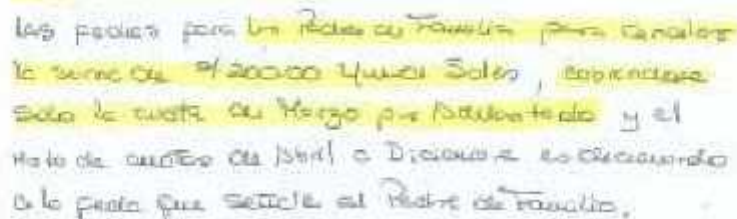 las fechas para los Padres de Familia para cancelar
la suma de S/ 200.00 Nuevos Soles, cobrandose
solo la cuota de Marzo por adelantado y el
resto de cuotas de Abril a Diciembre es de acuerdo
a la fecha que señale el Padre de Familia.